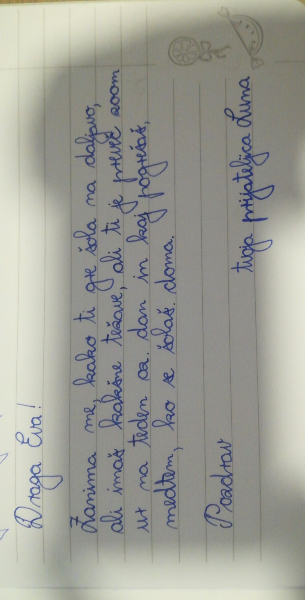 Draga Eva!
Zanima me, kako ti gre šola na daljavo,
ali imaš kakšne težave, ali ti je preveč zoom
ur na teden oz. dan in kaj pogrešaš,
medtem, ko se šolaš doma.
Pozdrav
tvoja prijateljica Luna